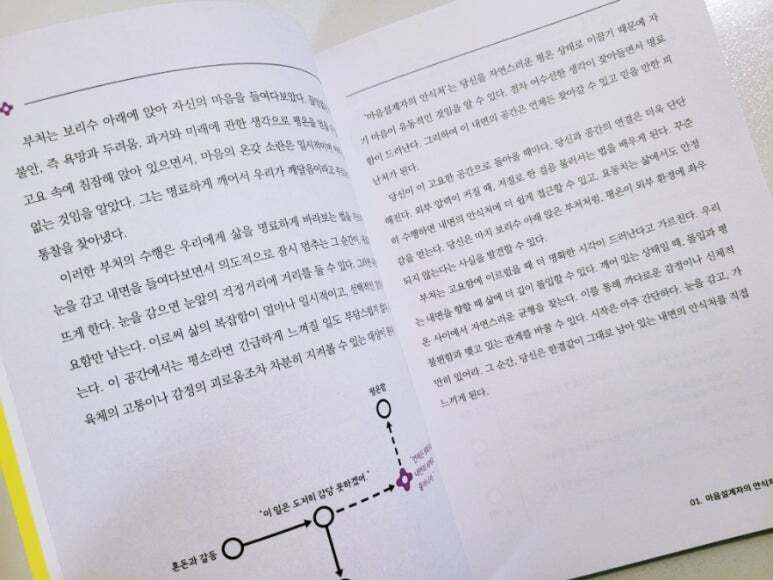 부처는 보리수 아래에 앉아 자신의 마음을 들여다보았다.
불안, 즉 욕망과 두려움, 과거와 미래에 관한 생각으로 평온을
고요 속에 침잠해 앉아 있으면서, 마음의 온갖 소란은 일시적이며
없는 것임을 알았다. 그는 명료하게 깨어서 우리가 깨달음이라고
통찰을 찾아냈다.
이러한 부처의 수행은 우리에게 삶을 명료하게 바라보는 법을
눈을 감고 내면을 들여다보면서 의도적으로 잠시 멈추는 그 순간이,
뜨게 한다. 눈을 감으면 눈앞의 걱정거리에 거리를 둘 수 있다. 그러면
요함만 남는다. 이로써 삶의 복잡함이 얼마나 일시적이고, 선택적인
는다. 이 공간에서는 평소라면 긴급하게 느껴질 일도 부담스럽지
육체의 고통이나 감정의 괴로움조차 차분히 지켜볼 수 있는
평온함
"이 일은 도저히 감당 못하겠어."
혼돈과 갈등
'마음설계자의 안식처'는 당신을 자연스러운 평온 상태로 이끌기 때문에 자
기 마음이 유동적인 것임을 알 수 있다. 점차 어수선한 생각이 잦아들면서 명료
함이 드러난다. 그리하여 이 내면의 공간은 언제든 찾아갈 수 있고 믿을 만한 피
난처가 된다.
당신이 이 고요한 공간으로 돌아올 때마다, 당신과 공간의 연결은 더욱 단단
해진다. 외부 압력이 커질 때, 저절로 한 걸음 물러서는 법을 배우게 된다. 꾸준
히 수행하면 내면의 안식처에 더 쉽게 접근할 수 있고, 요동치는 삶에서도 안정
감을 얻는다. 당신은 마치 보리수 아래 앉은 부처처럼, 평온이 외부 환경에 좌우
되지 않는다는 사실을 발견할 수 있다.
부처는 고요함에 이르렀을 때 더 명확한 시각이 드러난다고 가르친다. 우리
는 내면을 향할 때 삶에 더 깊이 몰입할 수 있다. 깨어 있는 상태일 때, 몰입과 평
온 사이에서 자연스러운 균형을 찾는다. 이를 통해 까다로운 감정이나 신체적
불편함과 맺고 있는 관계를 바꿀 수 있다. 시작은 아주 간단하다. 눈을 감고, 가
만히 있어라. 그 순간, 당신은 한결같이 그대로 남아 있는 내면의 안식처를 직접
느끼게 된다.
01. 마음설계자의 안식처